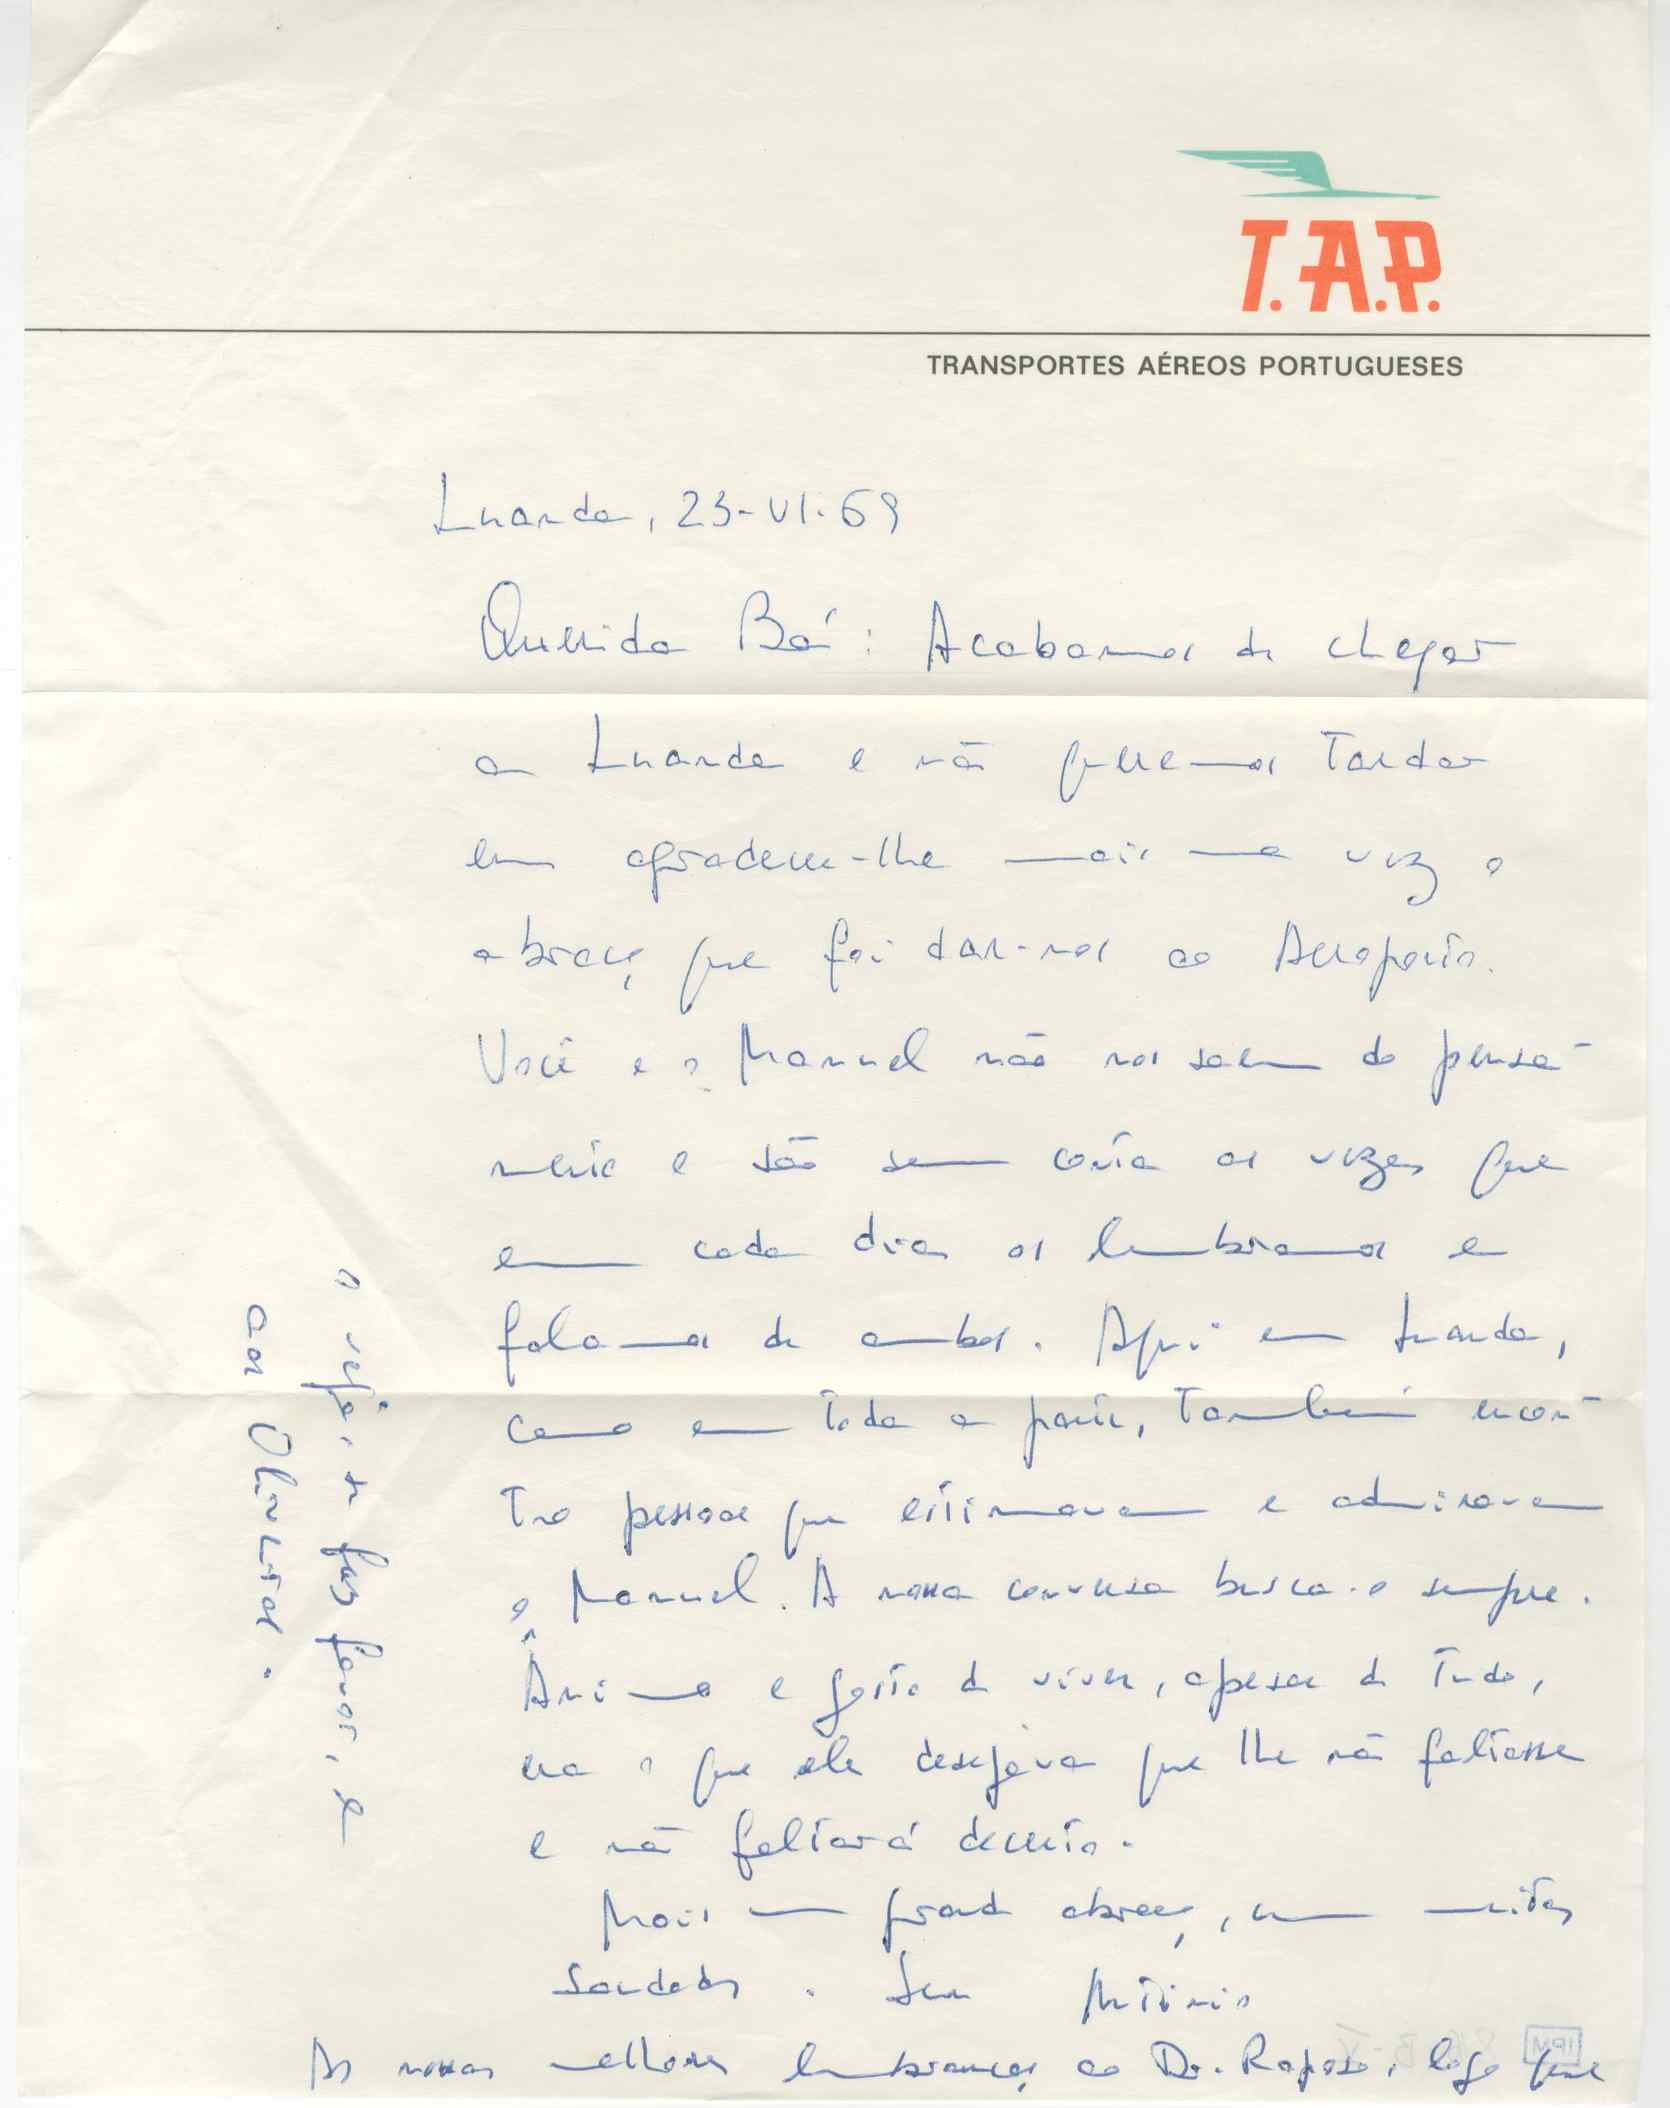 T.A.P.
TRANSPORTES AÉREOS PORTUGUESES
Luanda, 23-VI-69
Querida Bá: Acabamos de chegar
a Luanda e não queremos tardar
em agradecer-lhe mais uma vez o
abraço que foi dar-nos ao Aeroporto.
Você e o Manuel não nos saem do pensa-
mento e são sem conta as vezes que
em cada dia os lembramos e
falamos de ambos. Aqui em Luanda,
como em toda a parte, também encon-
tro pessoas que estimavam e admiravam
o Manuel. A nossa conversa busca-o sempre.
Ânimo e gosto de viver, apesar de tudo,
era o que ele desejava que lhe não faltasse
e não faltará decerto.
Mais um grande abraço, com muitas
saudades. Seu António
As nossas melhores lembranças ao Dr. Raposo, logo que
o veja, se faz favor, e
aos Oliveiras.
IPM